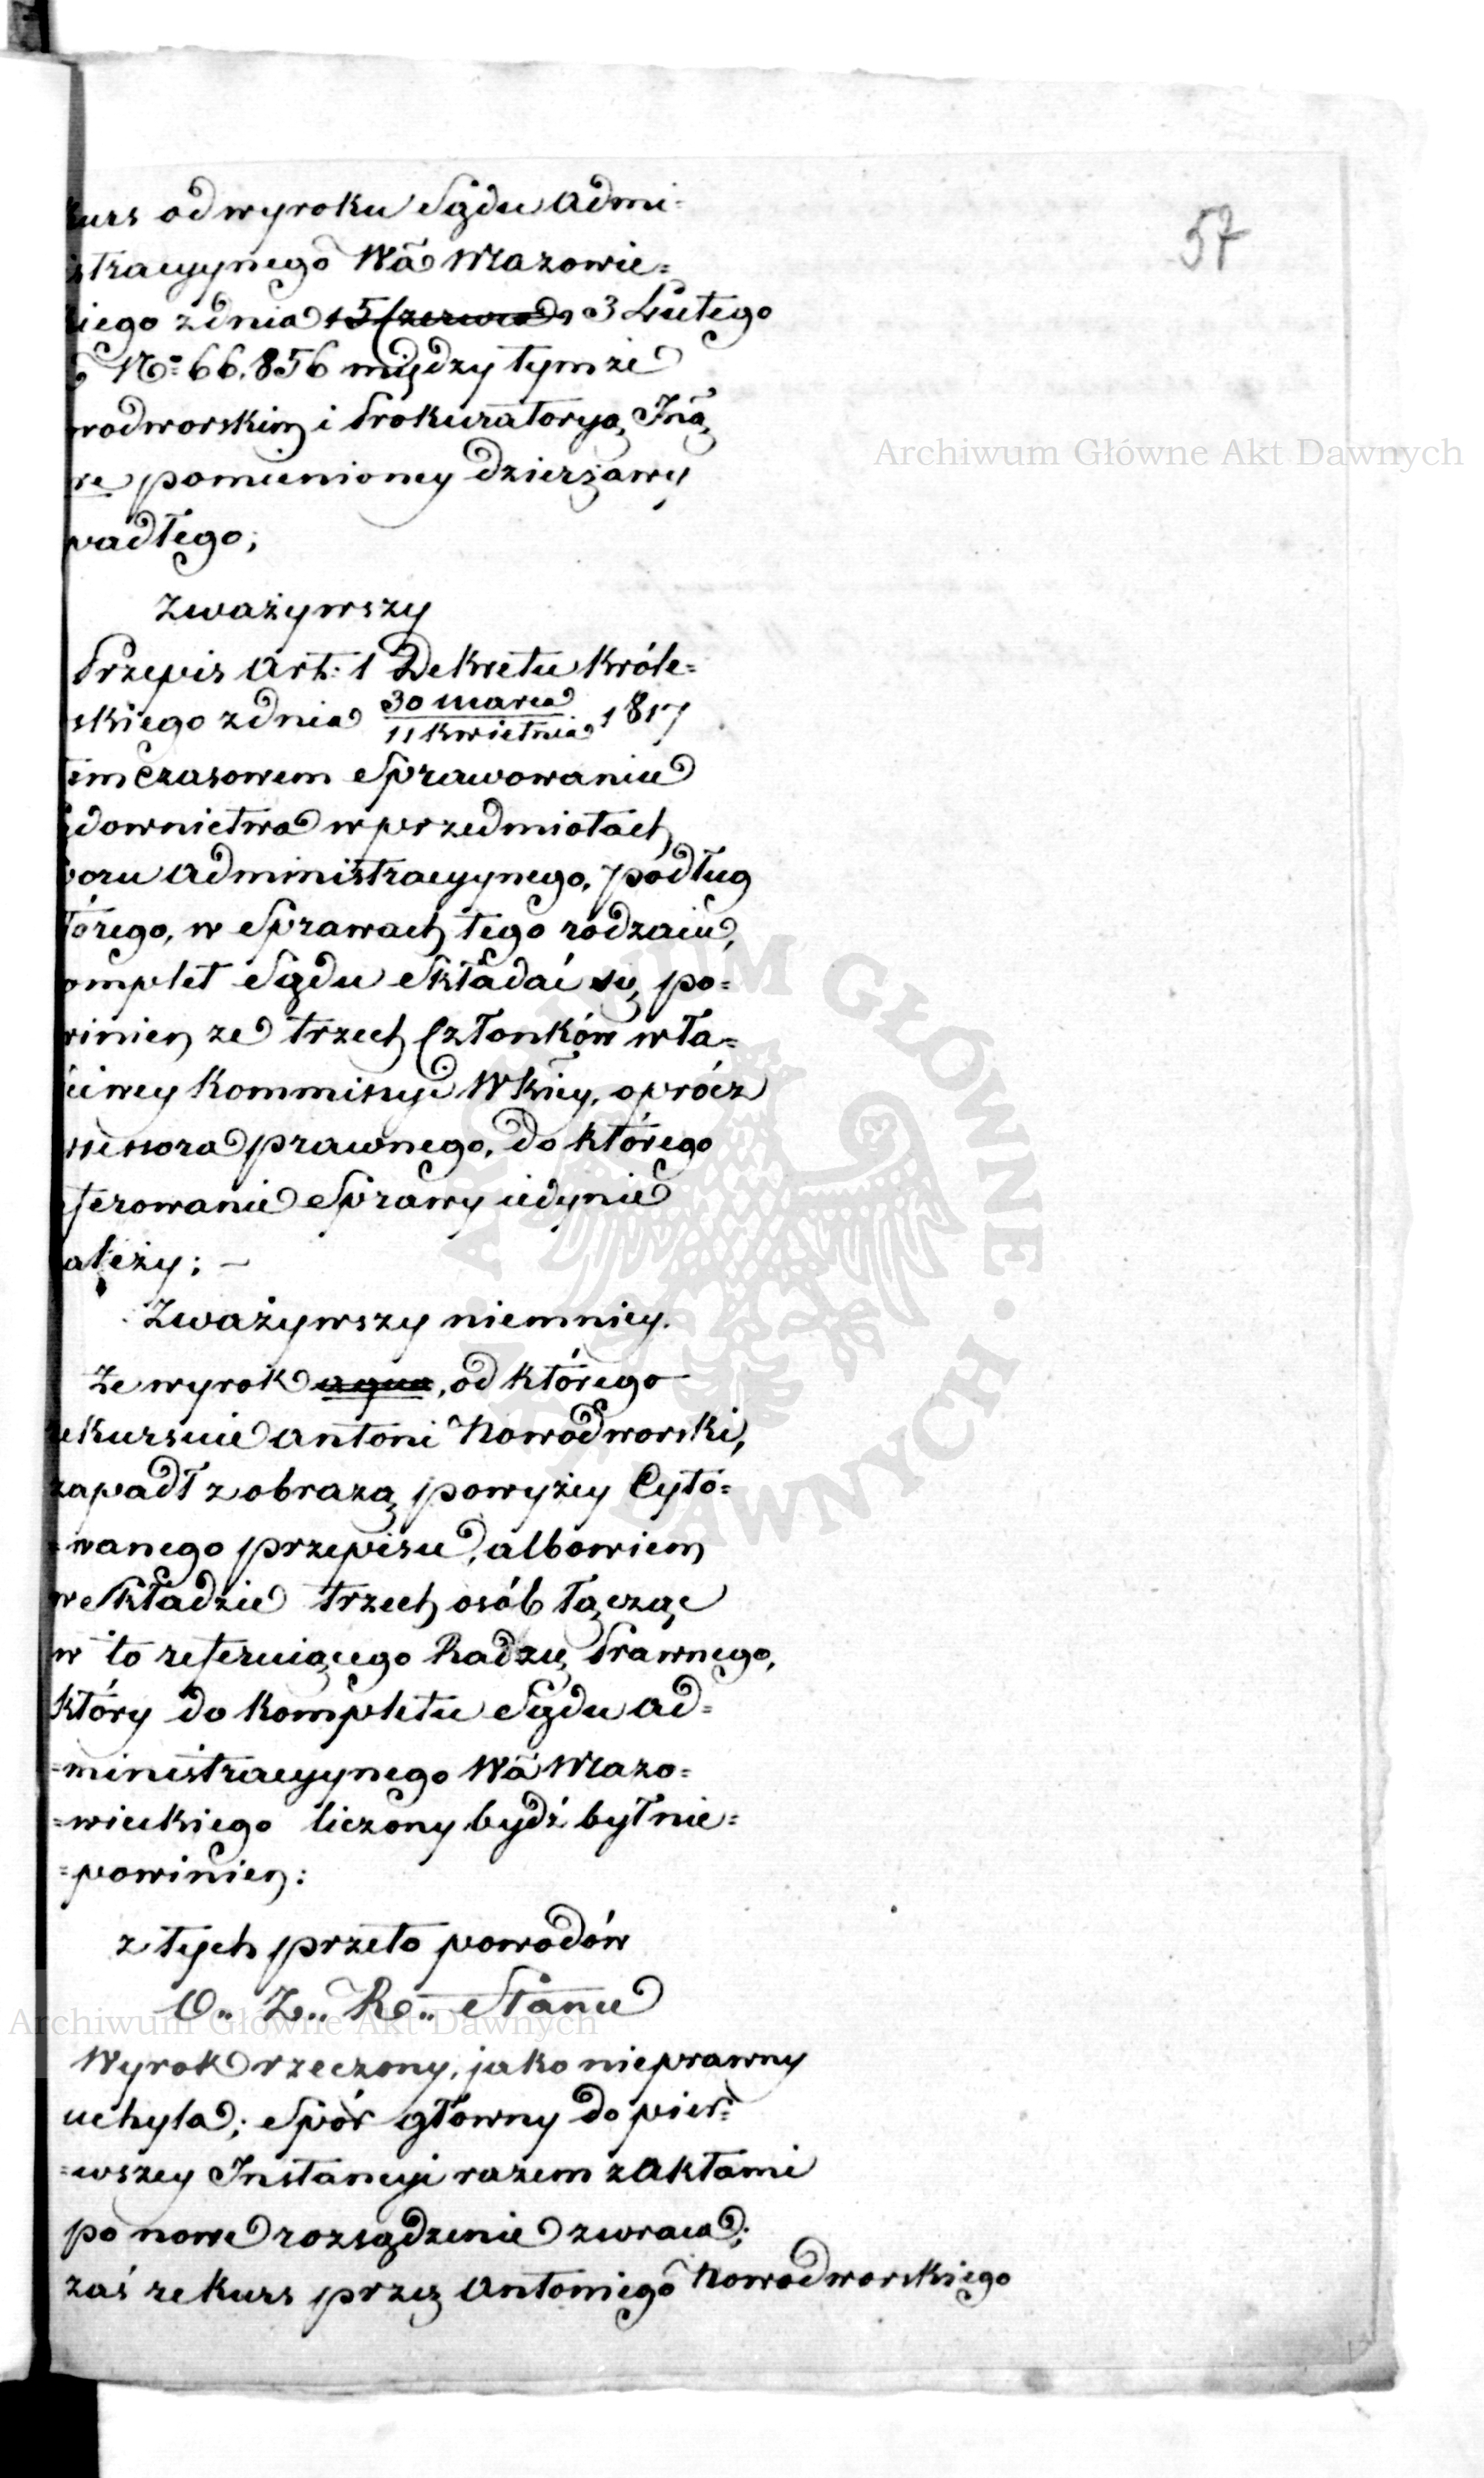 57
kurs od wyroku Sądu Admi=
stracyynego Wa Mazowie=
kiego z dnia 15 Czerwca 3 Lutego
N<sup>o</sup> 66.856 między tymże
wodworskim i Prokuratoryą Jną
re pomienioney dzierżawy
padłego;
Zważywszy
Przepis Art: 1 Dekretu Króle=
skiego z dnia 30 marca / 11 kwietnia 1817
tymczasowem Sprawowaniu
ądownictwa w przedmiotach
poru Administracyynego, podług
tórego, w Sprawach tego rodzaiu,
omplet Sądu Składać się po=
winien ze trzech Członków wła=
ściwey Kommissyi Wkiey, oprócz
ssessora prawnego, do którego
eferowanie Sprawy iedynie
ależy; –
Zważywszy niemniey.
Że wyrok a quo, od którego
rekursuie Antoni Nowodworski,
zapadł z obrazą powyżey Cyto=
=wanego przepisu, albowiem
w Składzie trzech osób łącząc
w to referuiącego Radzcę Prawnego,
który do kompletu Sądu ad=
=ministracyynego Wa Mazo=
=wieckiego liczony bydź był nie=
=powinien:
z tych przeto powodów
O.. Z.. R.. Stanu
Wyrok rzeczony, jako nieprawny
uchyla; Spór główny do pier=
=wszey Instancyi razem z Aktami
po nowe rozsądzenie zwraca;
zaś rekurs przez Antoniego Nowodworskiego
Archiwum Główne Akt Dawnych
ARCHIWUM GŁÓWNE AKT DAWNYCH
Archiwum Główne Akt Dawnych